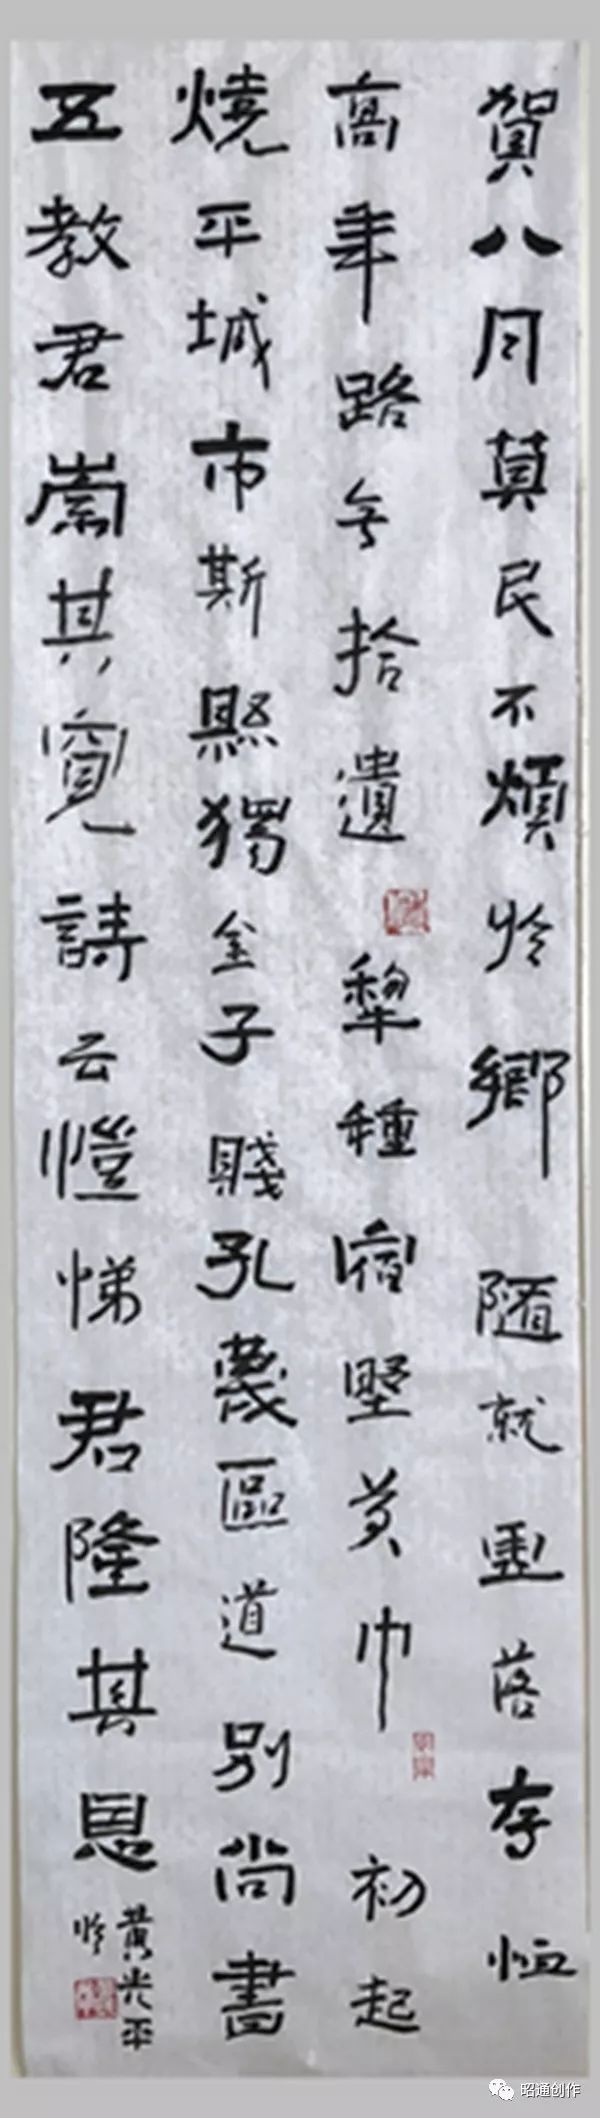 賀八月算民不煩於鄉隨就虛落存恤
高年路無拾遺犁種宿野黃巾初起
燒平城市斯縣獨全子賤孔蔑區道別尚書
五教君崇其寬詩云愷悌君隆其恩
黃光平
昭通创作